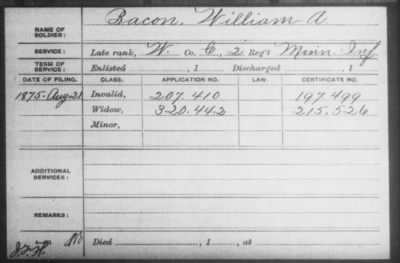 Bacon, William A.
NAME OF SOLDIER:
SERVICE: Late rank, W. Co. C, 2 Reg't Minn Inf
TERM OF SERVICE: Enlisted , 1 Discharged , 1
DATE OF FILING. CLASS. APPLICATION NO. LAW. CERTIFICATE NO.
1875-Aug 21 Invalid, 207.410 197.499
Widow, 320.442 215.526
Minor,
ADDITIONAL SERVICES:
REMARKS:
Died , 1 , at